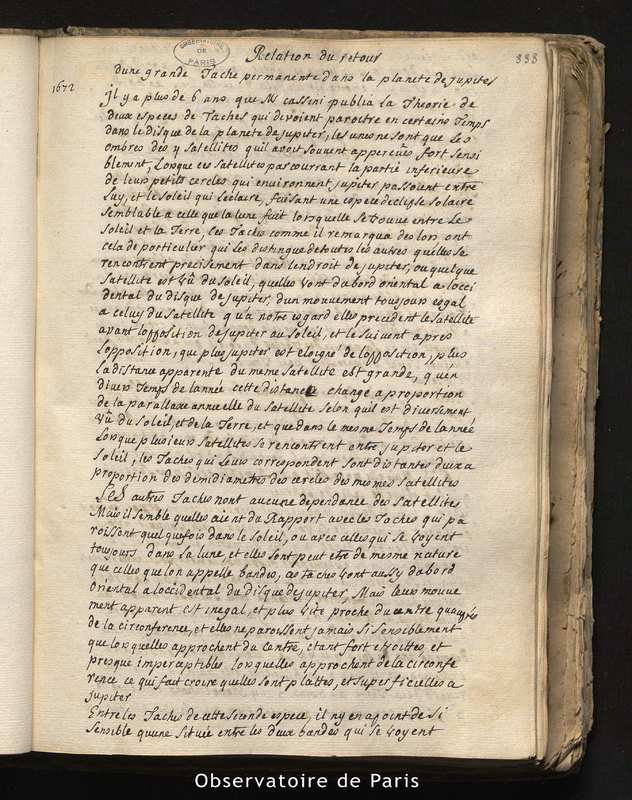 OBSERVATOIRE
DE
PARIS
Relation du retour
333
dune grande Tache permanente dans la planete de jupiter
1672
Jl y a plus de 6 ans que Mr cassini publia La Theorie de
deux especes de Taches qui devoient paroitre en certains Temps
dans le disque de la planete de jupiter, les unes ne sont que Les
ombres des 4 Satellites quil avoit souvent apperceües fort sensi
blement, Lorsque ces Satellites parcourrant la partie inferieure
de leurs petits cercles qui environnent jupiter passoient entre
Luy, et le soleil qui L'eclaire, faisant une espece declipse solaire
semblable a celle que la lune fait lorsquelle se trouve entre Le
Soleil et la Terre, Ces Taches comme il remarqua des lors ont
cela de particulier qui Les distingue de toutes les autres quelles se
rencontrent precisement dans lendroit de jupiter, ou quelque
satellite est vû du soleil, quelles vont dabord oriental a locci
dental du disque de jupiter, dun mouvement tousjours esgal
a celuy du Satellite qu'a nostre esgard elles precedent le Satellite
avant lopposition de jupiter au soleil, et le suivent apres
Lopposition, que plus jupiter est eloigné de lopposition, plus
La distance apparente du meme satellite est grande, qu'en
divers Temps de lannée cette distance change a proportion
de la parallaxe annuelle du Satellite selon quil est diversement
vû du soleil, et de la Terre, et que dans le mesme Temps de lannée
Lorsque plusieurs Satellites se rencontrent entre jupiter et le
soleil, les Taches qui Leurs correspondent sont distantes deux a
proportion des demidiametres des cercles des mesmes satellites
Les autres Taches nont aucune dependance des satellites
Mais il semble quelles aient du Rapport avec les Taches qui pa
roissent quelquefois dans le soleil, ou avec celles qui se voyent
toujours dans la lune, et elles sont peut etre de mesme nature
que celles que lon appelle bandes, ces taches vont aussy dabord
Oriental a loccidental du disque de jupiter, Mais leur mouve
ment apparent est inegal, et plus vite proche du centre
de la circonference, et elles ne paroissent jamais si sensiblement
que lorsquelles approchent du centre, etant fort etroittes, et
presque imperceptibles lorsquelles approchent de la circonfe
rence ce qui fait croire quelles sont plattes, et superficielles a
jupiter
Entre les Taches de cette seconde espece, il ny en a point de si
sensible quune située entre les deux bandes qui se voyent
Observatoire de Paris